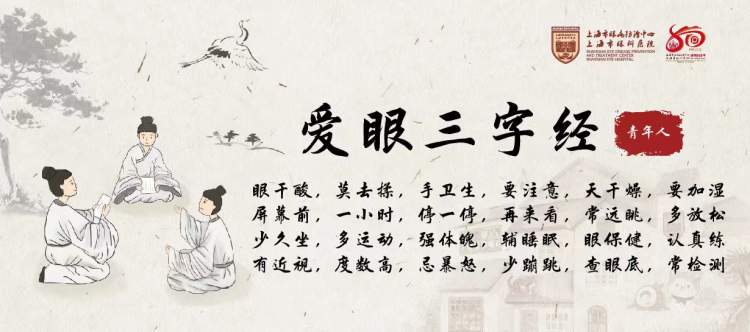 上海市眼病防治中心
上海市眼科医院
SHANGHAI EYE DISEASE PREVENTION
AND TREATMENT CENTER
SHANGHAI EYE HOSPITAL
爱眼三字经
青年人
眼干酸，莫去揉，手卫生，要注意，天干燥，要加湿
屏幕前，一小时，停一停，再来看，常远眺，多放松
少久坐，多运动，强体魄，辅睡眠，眼保健，认真练
有近视，度数高，忌暴怒，少蹦跳，查眼底，常检测